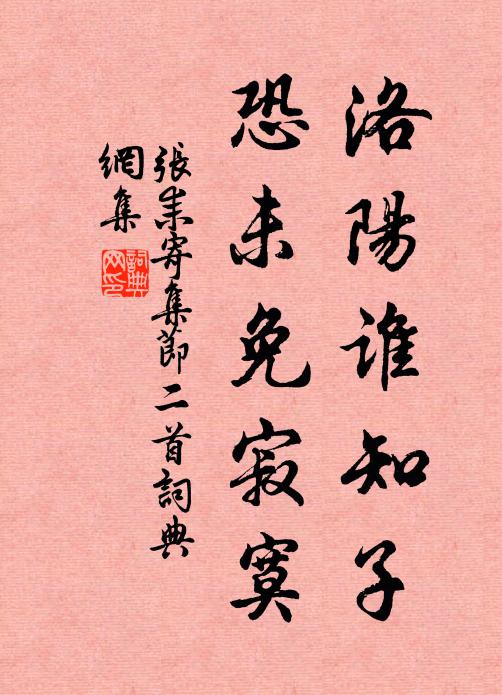 洛陽誰知子
恐未免寂寞
張耒寄集節二首詞典
網集
詞典
网印